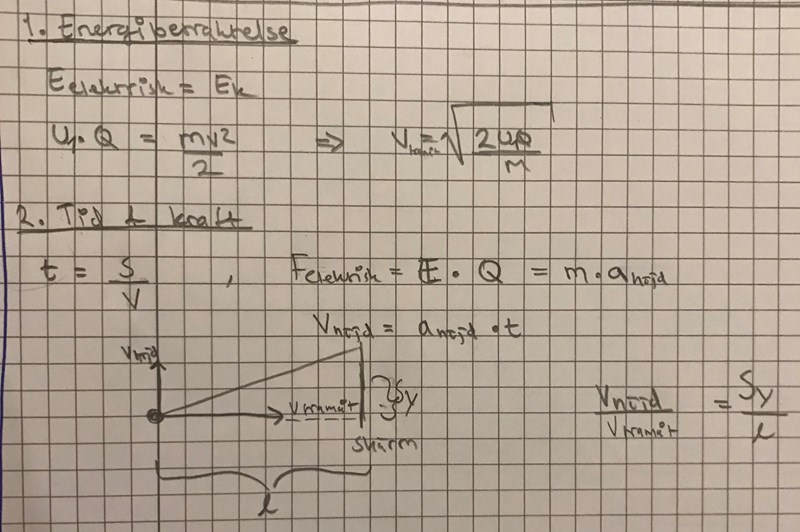 1. Energiberäkelse
Eelektrisk = Ek
U₁·Q = mv²/2 ⇒ Vframåt = √(2U₁Q/m)
2. Tid & kraft
t = S/V , Felektrisk = E · Q = m · ahöjd
Vhöjd = ahöjd · t
Vhöjd
Vframåt
Sy
Skärm
l
Vhöjd/Vframåt = Sy/l